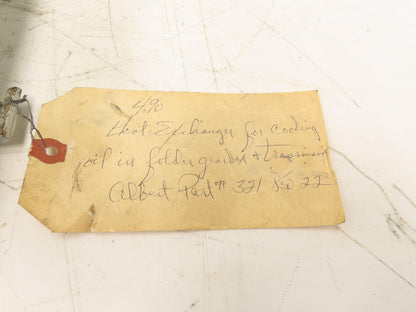 490
Heat Exchanger for cooling
oil in folder gearbox & Transmission
Albert Part # 321 80 22